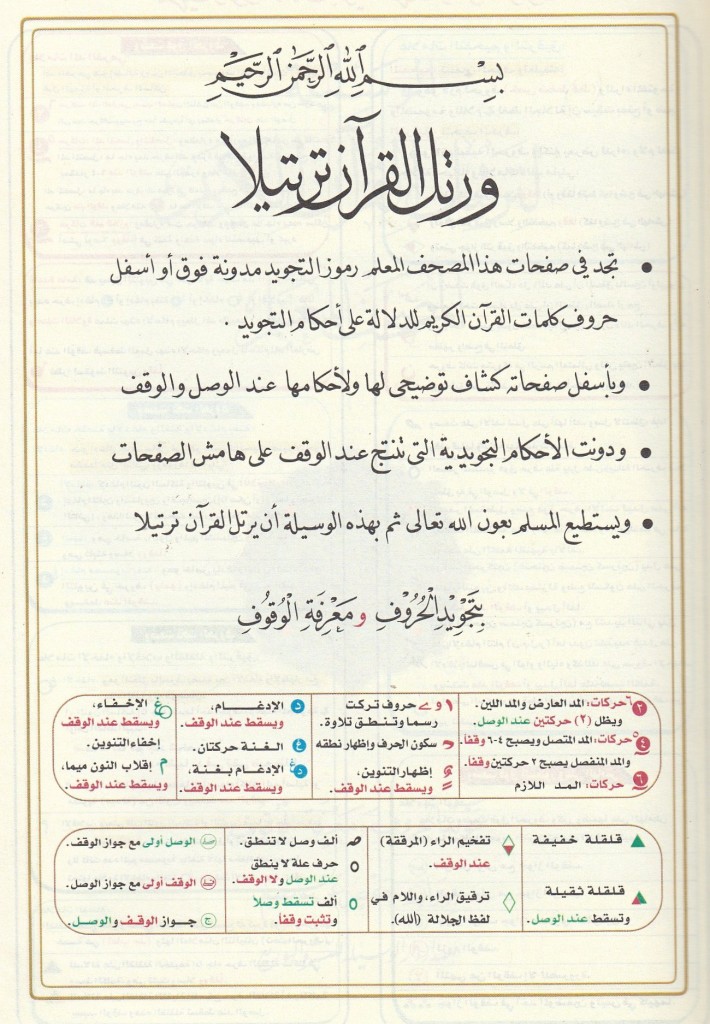 بِسْمِ اللهِ الرَّحْمٰنِ الرَّحِيْمِ
ورتل القرآن ترتيلا
• تجد في صفحات هذا المصحف المعلم رموز التجويد مدونة فوق أو أسفل
حروف كلمات القرآن الكريم للدلالة على أحكام التجويد .
• وبأسفل صفحاته كشاف توضيحى لها ولأحكامها عند الوصل والوقف
• ودونت الأحكام التجويدية التى تنتج عند الوقف على هامش الصفحات
• ويستطيع المسلم بعون الله تعالى ثم بهذه الوسيلة أن يرتل القرآن ترتيلا
بِتَجْوِيْدِ الْحُرُوْفِ وَمَعْرِفَةِ الْوُقُوْفِ
٢ ٦ حركات: المد العارض والمد اللين.
ويظل (٢) حركتين عند الوصل.
٤ ٥ حركات: المد المتصل ويصبح ٤-٦ وقفاً.
والمد المنفصل يصبح ٢ حركتين وقفاً.
٦ حركات: المد اللازم
ا و ے حروف تركت
رسما وتنطق تلاوة.
سكون الحرف وإظهار نطقه
إظهار التنوين،
ويسقط عند الوقف.
د الإدغـام،
ويسقط عند الوقف.
غ الغـنة حركتان.
د غ الإدغام بغـنة،
ويسقط عند الوقف.
غ الإخـفاء،
ويسقط عند الوقف
إخفاء التنوين.
م إقلاب النون ميما،
ويسقط عند الوقف.
قلقلة خفيفة
قلقلة ثقيلة
وتسقط عند الوصل.
تفخيم الراء (المرققة)
عند الوقف.
ترقيق الراء، واللام في
لفظ الجلالة (الله).
ص ألف وصل لا تنطق.
ه حرف علة لا ينطق
عند الوصل ولا الوقف.
ه ألف تسقط وصلاً
وتثبت وقفاً.
صلے الوصل أولى مع جواز الوقف.
قلے الوقف أولى مع جواز الوصل.
ج جـواز الوقـف والوصـل.